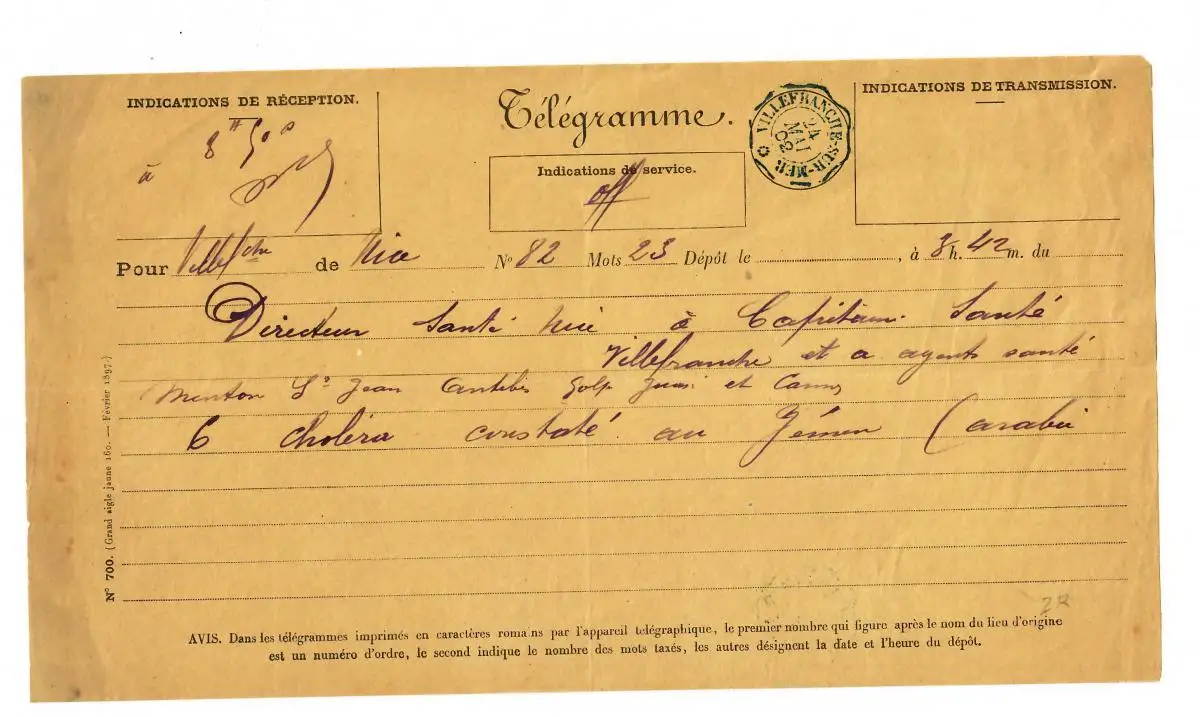 INDICATIONS DE RÉCEPTION.
Télégramme.
INDICATIONS DE TRANSMISSION.
VILLEFRANCHE-SUR-MER
24
MAI
02
à 8 H 50
Indications de service.
off
Pour Villefche de Nice N° 82 Mots 23 Dépôt le , à 8 h. 42 m. du
Directeur Santé Nice à Capitaine Santé
Villefranche et a agents santé
Menton St Jean Antibes Golfe Juan et Cannes
6 choléra constaté au Yémen (arabie
N° 700. (Grand aigle jaune 160. — Février 1897.)
AVIS. Dans les télégrammes imprimés en caractères romains par l'appareil télégraphique, le premier nombre qui figure après le nom du lieu d'origine
est un numéro d'ordre, le second indique le nombre des mots taxés, les autres désignent la date et l'heure du dépôt.